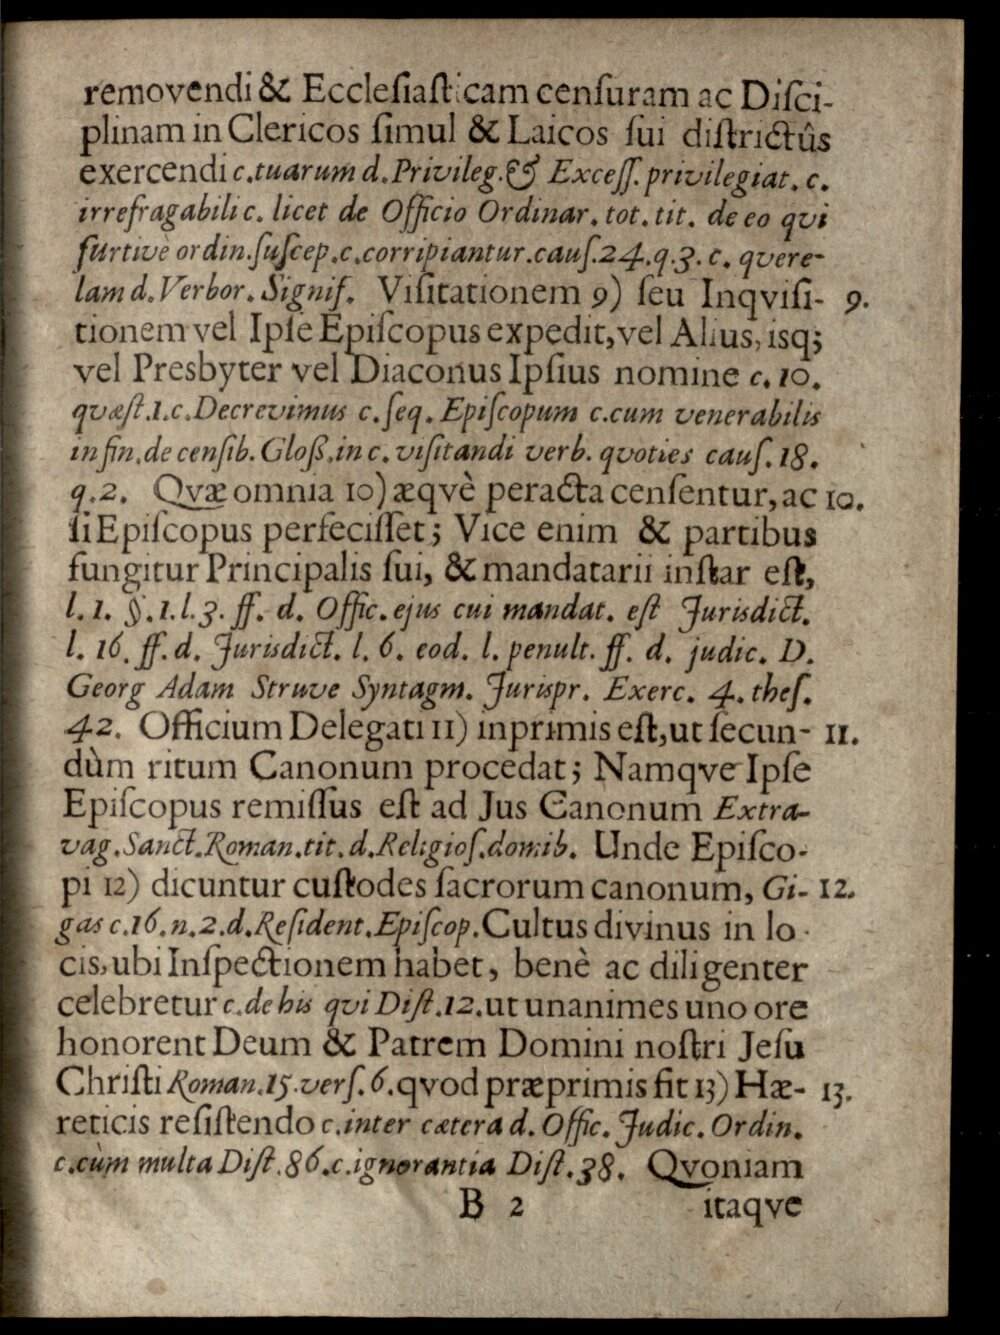 removendi & Ecclesiasticam censuram ac Disci-
plinam in Clericos simul & Laicos sui districtûs
exercendi c. tuarum d. Privileg. & Excess. privilegiat. c.
irrefragabili c. licet de Officio Ordinar. tot. tit. de eo qui
furtivè ordin. suscep. c. corripiantur. caus. 24. q. 3. c. quere-
lam d. Verbor. Signif. Visitationem 9) seu Inqvisi- 9.
tionem vel Ipse Episcopus expedit, vel Alius, isq;
vel Presbyter vel Diaconus Ipsius nomine c. 10.
quæst. 1. c. Decrevimus c. seq. Episcopum c. cum venerabilis
in fin. de censib. Gloß. in c. visitandi verb. qvoties caus. 18.
q. 2. Qvæ omnia 10) æqvè peracta censentur, ac 10.
si Episcopus perfecisset; Vice enim & partibus
fungitur Principalis sui, & mandatarii instar est,
l. 1. §. 1. l. 3. ff. d. Offic. ejus cui mandat. est Jurisdict.
l. 16. ff. d. Jurisdict. l. 6. eod. l. penult. ff. d. judic. D.
Georg Adam Struve Syntagm. Jurispr. Exerc. 4. thes.
42. Officium Delegati 11) inprimis est, ut secun- 11.
dùm ritum Canonum procedat; Namqve Ipse
Episcopus remissus est ad Jus Canonum Extra-
vag. Sanct. Roman. tit. d. Religios. domib. Unde Episco-
pi 12) dicuntur custodes sacrorum canonum, Gi- 12.
gas c. 16. n. 2. d. Resident. Episcop. Cultus divinus in lo-
cis, ubi Inspectionem habet, benè ac diligenter
celebretur c. de his qvi Dist. 12. ut unanimes uno ore
honorent Deum & Patrem Domini nostri Jesu
Christi Roman. 15. vers. 6. qvod præprimis fit 13) Hæ- 13.
reticis resistendo c. inter cætera d. Offic. Judic. Ordin.
c. cùm multa Dist. 86. c. ignorantia Dist. 38. Qvoniam
B 2 itaqve